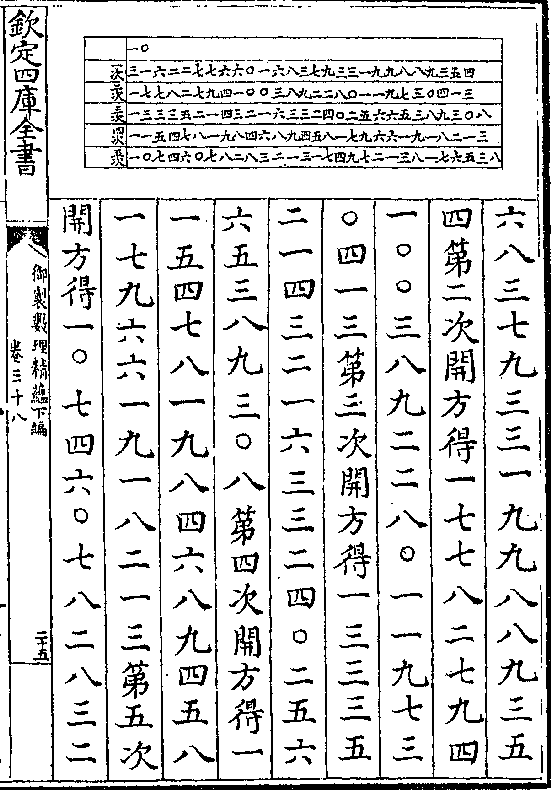 一〇
一次 三一六二二七七六六〇一六八三七九三三一九九八八九三五四
二次 一七七八二七九四一〇〇三八九二二八〇一一九七三〇四一三
三次 一三三三五二一四三二一六三三二四〇二五六六五三八九三〇八
四次 一一五四七八一九八四六八九四五八一七九六六一九一八二一三
五次 一〇七四六〇七八二八三二一三一七四九七二一三八一七六五三八
六八三七九三三一九九八八九三五
四第二次開方得一七七八二七九四
一〇〇三八九二二八〇一一九七三
〇四一三第三次開方得一三三三五
二一四三二一六三三二四〇二五六
六五三八九三〇八第四次開方得一
一五四七八一九八四六八九四五八
一七九六六一九一八二一三第五次
開方得一〇七四六〇七八二八三二
欽定四庫全書
御製數理精蘊下編
卷三十八
二十五